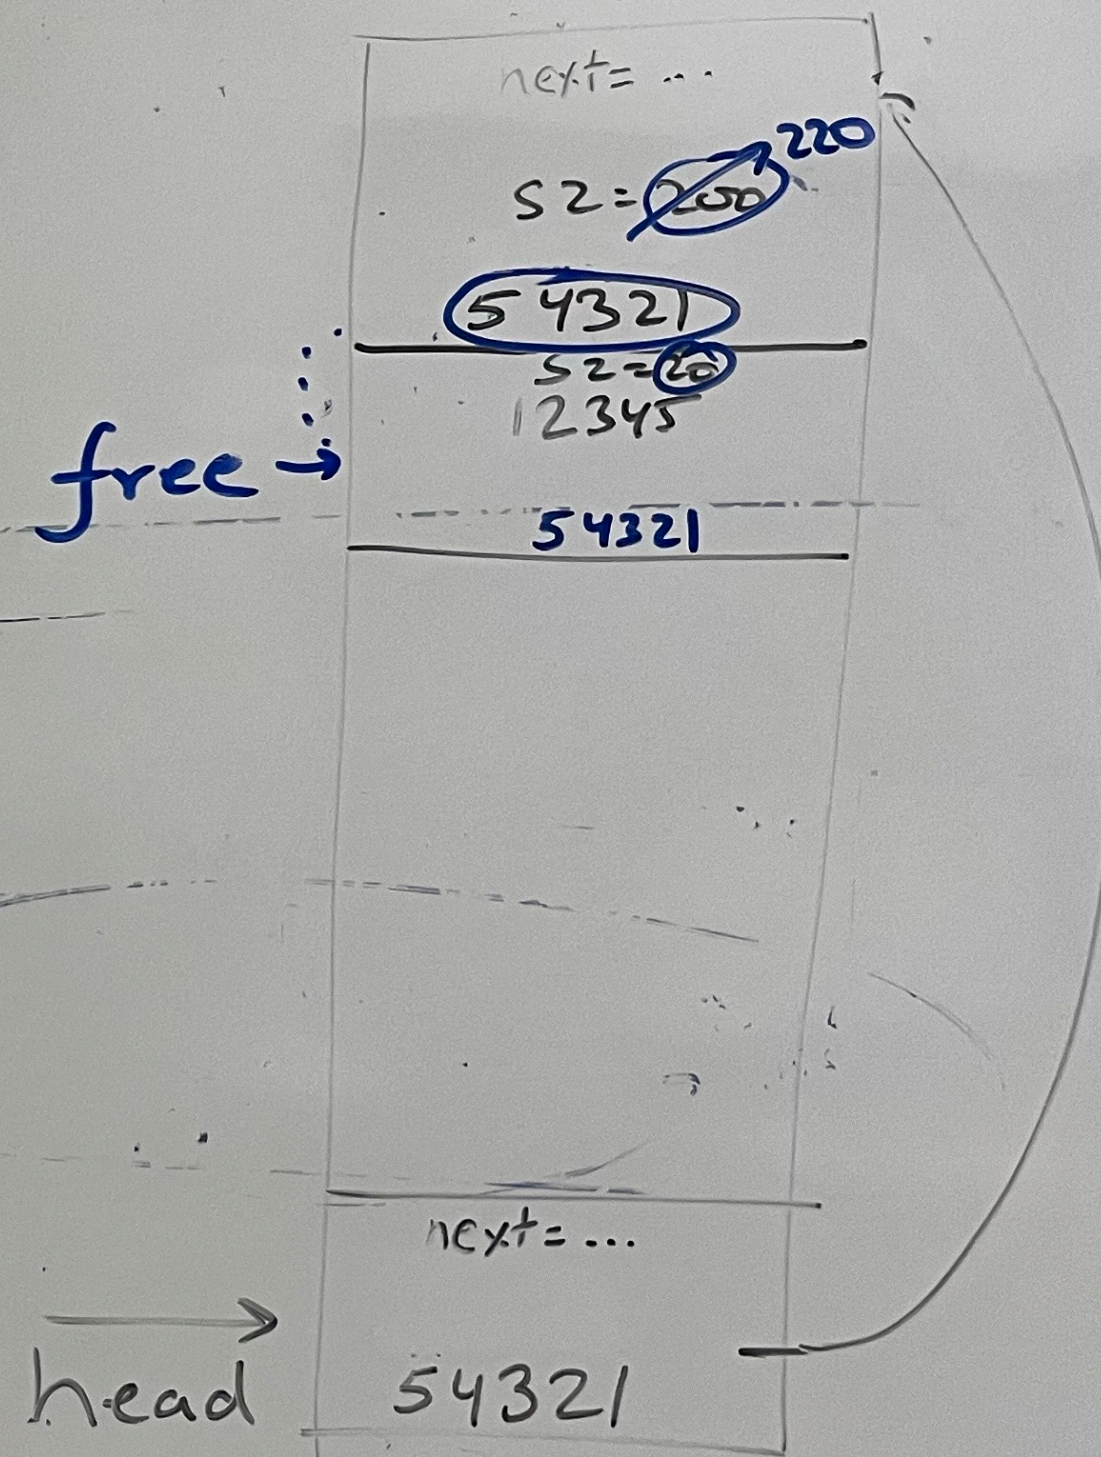 next= ...
220
sz=200
54321
sz=20
12345
free →
54321
next= ...
head
54321